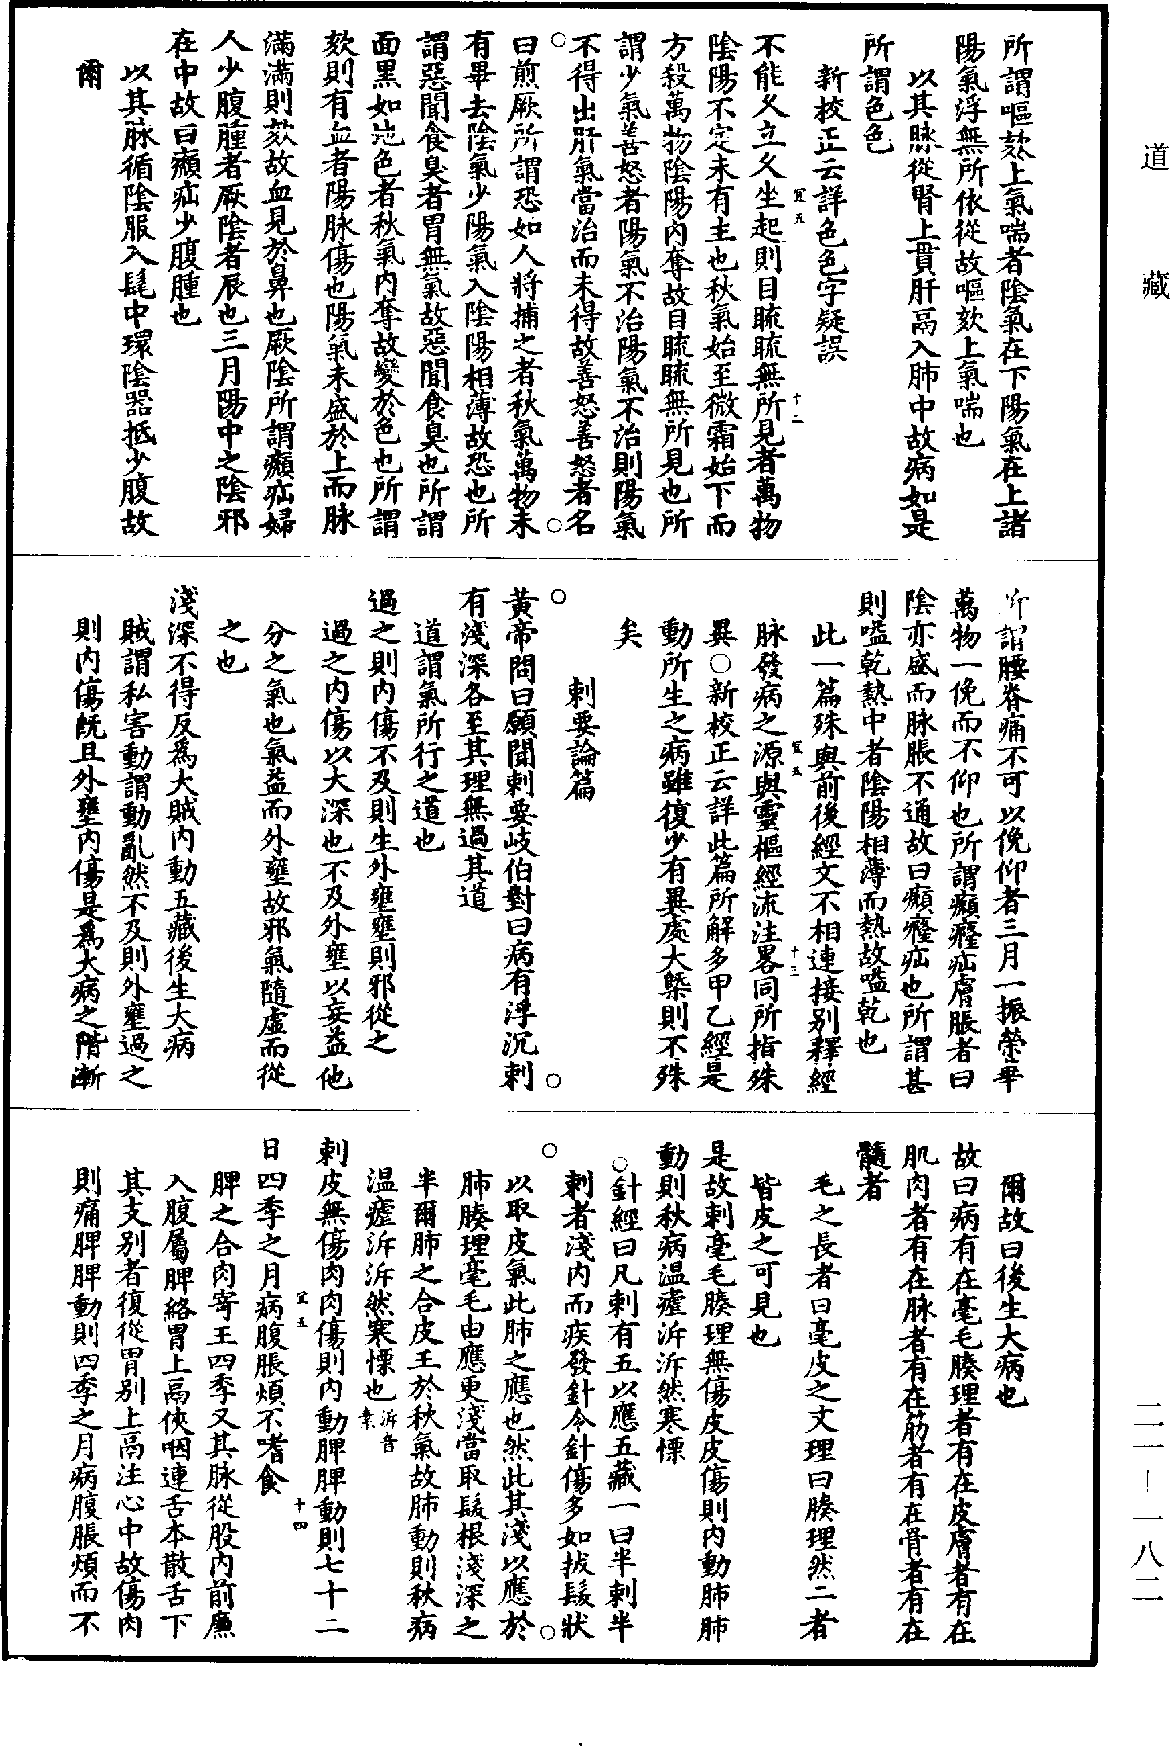 道藏
所謂嘔欬上氣喘者陰氣在下陽氣在上諸
陽氣浮無所依從故嘔欬上氣喘也
以其脉從腎上貫肝鬲入肺中故病如是
所謂色色
新校正云詳色色字疑誤
不能久立久坐起則目䀮䀮無所見者萬物
宜五
十二
陰陽不定未有主也秋氣始至微霜始下而
方殺萬物陰陽內奪故目䀮䀮無所見也所
謂少氣善怒者陽氣不治陽氣不治則陽氣
不得出肝氣當治而未得故善怒善怒者名
曰煎厥所謂恐如人將捕之者秋氣萬物未
有畢去陰氣少陽氣入陰陽相薄故恐也所
謂惡聞食臭者胃無氣故惡聞食臭也所謂
面黑如地色者秋氣內奪故變於色也所謂
欬則有血者陽脉傷也陽氣未盛於上而脉
滿滿則欬故血見於鼻也厥陰所謂㿗疝婦
人少腹腫者厥陰者辰也三月陽中之陰邪
在中故曰㿗疝少腹腫也
以其脉循陰股入髦中環陰器抵少腹故
爾
所謂腰脊痛不可以俛仰者三月一振榮華
萬物一俛而不仰也所謂㿗癃疝膚脹者曰
陰亦盛而脉脹不通故曰㿗癃疝也所謂甚
則嗌乾熱中者陰陽相薄而熱故嗌乾也
此一篇殊與前後經文不相連接别釋經
脉發病之源與靈樞經流注畧同所指殊
宜五
十三
異○新校正云詳此篇所解多甲乙經是
動所生之病雖復少有異處大槩則不殊
矣
刺要論篇
黃帝問曰願聞刺要歧伯對曰病有浮沉刺
有淺深各至其理無過其道
道謂氣所行之道也
過之則內傷不及則生外壅壅則邪從之
過之內傷以大深也不及外壅以妄益他
分之氣也氣益而外壅故邪氣隨虛而從
之也
淺深不得反爲大賊內動五藏後生大病
賊謂私害動謂動亂然不及則外壅過之
則內傷既且外壅內傷是爲大病之階漸
爾故曰後生大病也
故曰病有在毫毛腠理者有在皮膚者有在
肌肉者有在脉者有在筋者有在骨者有在
髓者
毛之長者曰毫皮之文理曰腠理然二者
皆皮之可見也
是故刺毫毛腠理無傷皮皮傷則內動肺肺
動則秋病温瘧泝泝然寒慄
○針經曰凡刺有五以應五藏一曰半刺半
刺者淺內而疾發針令針傷多如拔髮狀
以取皮氣此肺之應也然此其淺以應於
肺腠理毫毛由應更淺當取髮根淺深之
半爾肺之合皮王於秋氣故肺動則秋病
温瘧泝泝然寒慄也泝音素
刺皮無傷肉肉傷則內動脾脾動則七十二
宜五
十四
日四季之月病腹脹煩不嗜食
脾之合肉寄王四季又其脉從股內前廉
入腹屬脾絡胃上鬲俠咽連舌本散舌下
其支别者復從胃别上鬲注心中故傷肉
則痛脾脾動則四季之月病腹脹煩而不
二一—一八二